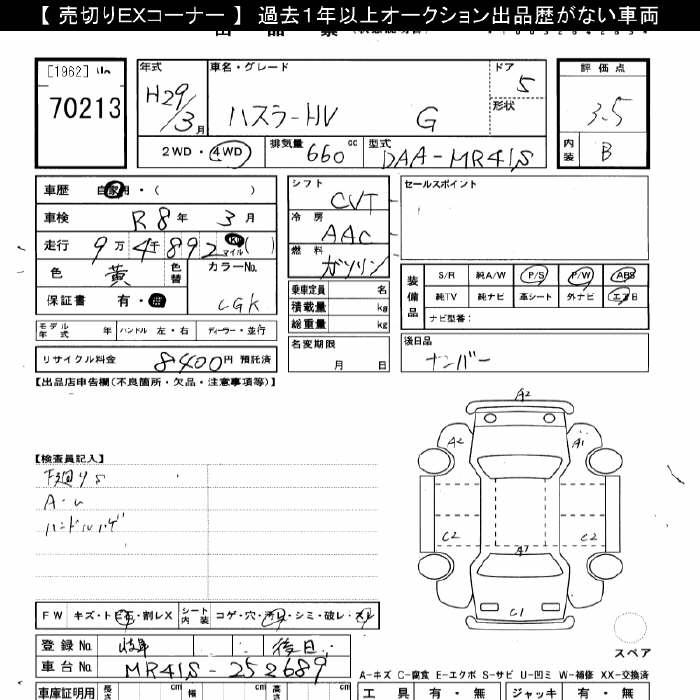 【 売切りEXコーナー 】 過去1年以上オークション出品歴がない車両
[1962]
70213
年式
H29/3月
車名・グレード
ハスラーHV G
ドア 5
形状
評価点
3.5
内装 B
2WD・4WD
排気量 660 cc
型式 DAA-MR41S
車歴 自家用・( )
車検 R8年 3月
走行 9万4千892 Km マイル ( )
色 黄 色替 カラーNo. CGK
保証書 有・無
モデル年式 年 ハンドル 左・右 ディーラー・並行
リサイクル料金 8400円 預託済
シフト CVT
冷房 AAC
燃料 ガソリン
乗車定員 名
積載量 kg
総重量 kg
名変期限
月 日
セールスポイント
装備品 S/R 純A/W P/S P/W ABS
純TV 純ナビ 革シート 外ナビ エアB
ナビ型番:
後日品
ナンバー
【出品店申告欄(不良箇所・欠品・注意事項等)】
【検査員記入】
下廻りS
A・U
ハンドルハゲ
A2
A2 A1
C2 C2
A1
C1
スペア
FW キズ・ト ビ石・割レX シート内装 コゲ・穴・汚レ・シミ・破レ・スレ
登録No. 岐阜 後日
車台No. MR41S-252689
A-キズ C-腐食 E-エクボ S-サビ U-凹ミ W-補修 XX-交換済
車庫証明用 長さ cm 幅 cm 高さ cm
工具 有・無 ジャッキ 有・無